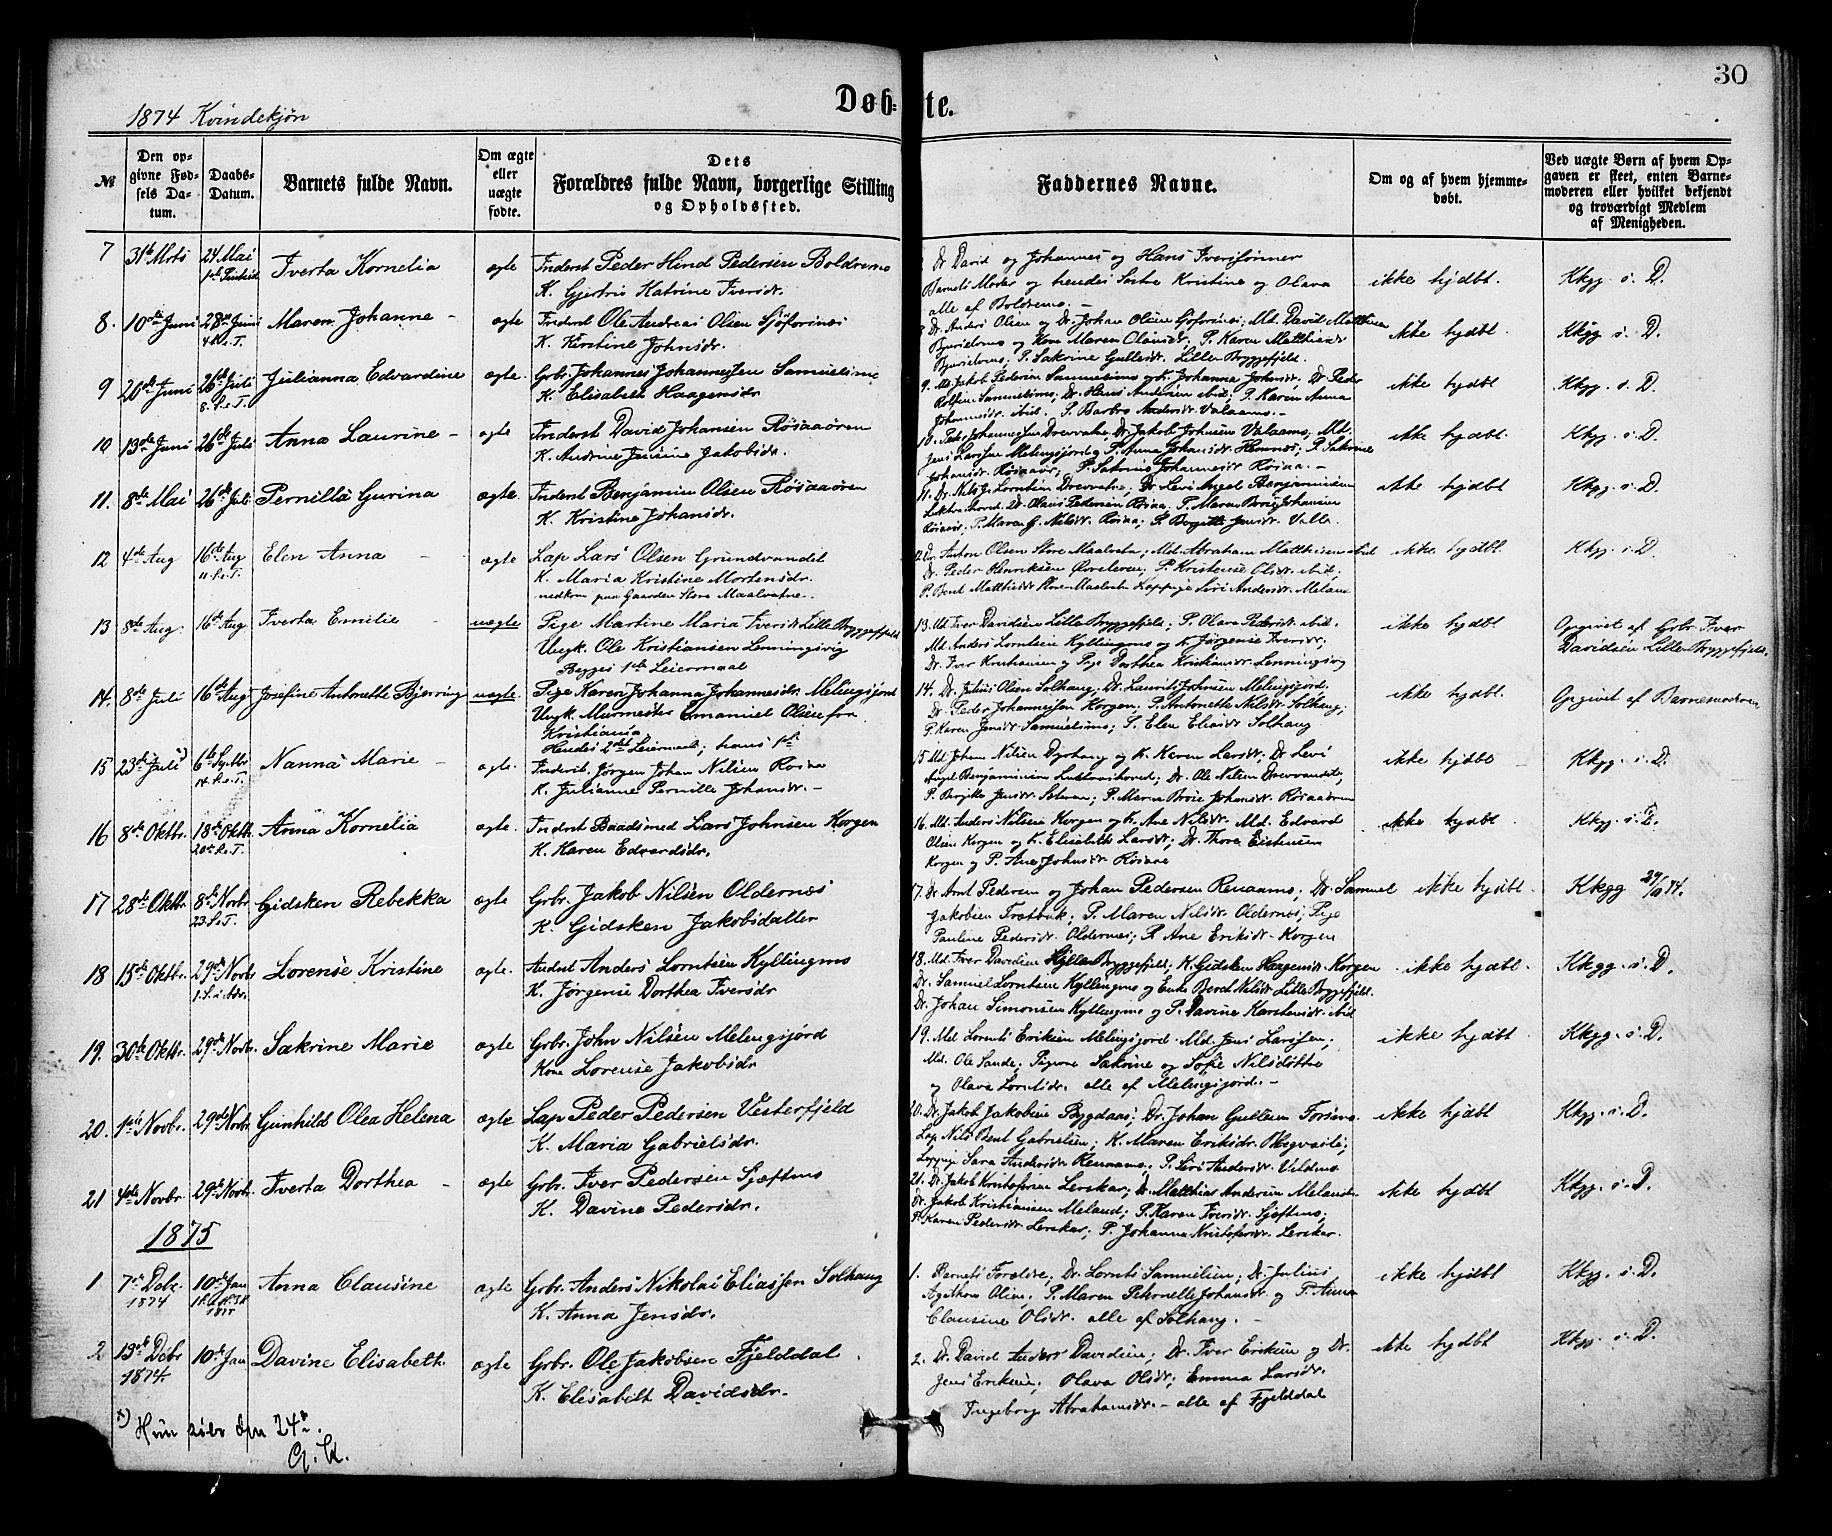 30
1874 Kvindekjøn
Døbte.
№
Den op-
givne Fød-
sels Da-
tum.
Daabs-
Datum.
Barnets fulde Navn.
Om ægte
eller
uægte
fødte.
Dets
Forældres fulde Navn, borgerlige Stilling
og Opholdssted.
Faddernes Navne.
Om og af hvem hjemme-
døbt.
Ved uægte Børn af hvem Op-
gaven er skeet, enten Barne-
moderen eller hvilket bekjendt
og troværdigt Medlem
af Menigheden.
7 31te Mrts 24 Mai Iverta Kornelia ægte Inderst Peder Hind Pedersen Boldremo
K. Gjertris Katrine Iversdr.
Dr David og Johannes og Hans Iversønner
Barnets Moder og hendes Søstre Kristine og Olava
alle af Boldremo. -
ikke hjdbt. Kkgg. s. D.
8. 10de Juni 28de Juni Maren Johanne - ægte Inderst Ole Andreas Olsen Sjøforsnes
4 S. e. T. K. Kirstine Johnsdr.
Dr. Anders Olsen og Dr. Johan Olsen Sjøforsnes; Md. David Matthisen
Bjurselvmo og Kone Maren Olausdr, P. Karen Matthisdr
Bjurselvmo, P. Sakrine Gullesdr. Lille Bryggefjeld.
ikke hjdbt Kkgg s. D.
9 20de Juni 26de Juli Julianna Edvardine ægte. Grbr. Johannes Johannessen Samuelsmo
8. S. e. T. K. Elisabeth Haagensdr
9. Md Jakob Pedersen Samuelsmo og K. Johanna Johnsdr. Dr. Peder
Samuelsmo; Dr. Hans Andersen ibid; P. Karen Anna
Johansdr. ibid. P. Barbro Andersdr. Valaamo. -
ikke hjdbt Kkgg. s. D.
10 13de Juni 26de Juli Anna Laurine - ægte Inderst David Johansen Røsaaøren
K. Andrine Jensine Jakobsdr.
10. Peder Johannessen Drevvatne, Dr. Jakob Johnsen Valaamo, Md.
Jens Larssen Melingsjord og P. Anna Johansdr. Hemnes; P. Sakrine
Johansdr. Røsaaør; P. Sakrine Johannesdr Røsaa. -
ikke hjdbt. Kkgg. s. D.
11. 8de Mai 26de Juli Pernilla Gurina ægte. Inderst Benjamin Olsen Røsaaøren
K. Kristine Johansdr.
11. Dr. Nils J. Lorntsen Drevvatne; Dr. Levi Angel Benjaminsen
Dr. Olaus Pedersen Røsaa P. Maren Broie Johansen
Røsaaør. P. Maren G. Nilsdr. Røsaa; P. Birgitte Jensdr. Valla
ikke hjdbt Kkgg. s. D.
12 4de Aug 16de Aug Elen Anna - ægte Lap Lars Olsen Grundvandet
11. S. e. T. K. Maria Kristine Mortensdr.
nedkom paa Gaarden Store Maalvatne.
12 Dr. Anton Olsen Store Maalvatn; Md. Abraham Matthisen ibid
Dr. Peder Henriksen Øvreleren; P. Kristense Olsdr. ibid;
P. Beret Matthisdr Store Maalvatn Lappige Siri Andersdr. Melan
ikke hjdbt. Kkgg. s. D.
13 8de Aug 16de Aug Iverta Emilie - uægte Pige Martine Maria Iversdr Lille Bryggefjeld
Ungk. Ole Kristiansen Lenningsvig
Begges 1ste Leiermaal
13. Md Iver Davidsen Lille Bryggefjeld; P. Olava Pedersdr ibid.
Md. Anders Lorntsen Kyllingmo og K. Jørgense Iversdr;
Dr. Iver Kristiansen og Pige Dorthea Kristiansdr Lenningsvig
ikke hjdbt Opgivet af Grbr Iver
Davidsen Lille Bryggefjeld.
14. 8de Juli 16de Aug Josefine Antonette Bjerring uægte. Pige Karen Johanna Johannesdr. Melingsjord
Ungk. Murmester Emanuel Olsen fra
Kristiania
Hendes 2det Leiermaal; hans 1ste
14. Dr. Julius Olsen Solhaug; Dr. Laurits Johnsen Melingsjord,
Dr. Peder Johannessen Korgen; P. Antonette Nilsdr. Solhaug;
P. Karen Jensdr Samuelsmo; P. Elen Eliasdr Solhaug
ikke hjdbt. Opgivet af Barnemoderen
15 23de Juli x) 6te Septbr Nanna Marie - ægte. Inderst. Jørgen Johan Nilsen Røsaa
14. S. e. T. K. Julianne Pernille Johansdr. -
15 Md. Johan Nilsen Dyrhaug og K. Karen Larsdr. Dr Levi
Angel Benjaminsen; Dr. Ole Nilsen Drevvandet,
P. Birgitte Jensdr.; P. Maren Broie Johansdr. Røsaaøren
ikke hjdbt Kkgg. s. D.
16 8de Oktbr. 18de Oktbr Anna Kornelia ægte. Inderst Baadsmed Lars Johnsen Korgen
20de S. e. T. K. Karen Edvardsdr.
16. Md. Anders Nilsen Korgen og K. Ane Nilsdr. Md. Edvard
Olsen Korgen og K. Elisabeth Larsdr; Dr. Thore Eistensen
Korgen og P. Ane Johnsdr Røsaa
ikke hjdbt. Kkgg. s. D.
17 28de Oktbr. 8de Novbr Gidsken Rebekka ægte Grbr. Jakob Nilsen Oldernæs
23. S. e. T. K. Gidsken Jakobsdatter
17. Dr Arnt Pedersen og Johan Pedersen Renaamo; Dr. Samuel
Jakobsen; P. Maren Nilsdr. Oldernæs; Pige
Pauline Pedersdr. Oldernæs; P. Ane Eriksdr. Korgen
ikke hjdbt. Kkgg 29/10 74.
18 15de Oktbr. 29de Novbr Lorense Kristine ægte. Inderst Anders Lorntsen Kyllingmo
1. S. i Adv. K. Jørgense Dorthea Iversdr
18. Md. Iver Davidsen Lille Bryggefjeld; K. Gidsken Haagensdr Korgen
Dr. Samuel Lorntsen Kyllingmo og Enke Beret Nilsdr Lille Bryggefjeld.
Dr. Johan Simonsen Kyllingmo og P. Davine Karstensdr. ibid
ikke hjdbt. Kkgg. s. D.
19. 30te Oktbr. 29de Novbr. Sakrine Marie ægte Grbr. John Nilsen Melengsjord
Kone Lorense Jakobsdr
19. Md Lornts Eriksen Melingsjord Md. Jens Larssen;
Md. Ole Sande; Pigerne Sakrine og Sofie Nilsdøttre
og Olava Lorntsdr. alle af Melengsjord. -
ikke hjdbt Kkgg. s. D.
20. 1ste Novbr. 29de Novbr. Gunhild Olea Helena ægte Lap Peder Pedersen Vesterfjeld
K. Maria Gabrielsdr.
20. Dr. Jakob Jakobsen Bygdaas; Dr. Johan Gullesen Forsmo.
Lap Nils Bent Gabrielsen; K. Maren Eriksdr.
Lappige Sara Andersdr Renaamo; P. Siri Andersdr.
ikke hjdbt Kkgg. s. D.
21 4de Novbr 29de Novbr. Iverta Dorthea - ægte Grbr. Iver Pedersen Sjøftmo
K. Davine Pedersdr.
21. Dr. Jakob Kristofersen Lerskar; Dr. Matthias Andersen Meland.
Dr. Jakob Kristiansen Meland; P. Karen Iversdr. Sjøftmo;
P. Karen Pedersdr Lerskar; P. Johanna Kristofersdr. Lerskar.
ikke hjdbt Kkgg. s. D.
1875
1 7de Debr. 10de Jan Anna Clausine ægte Grbr. Anders Nikolai Eliassen Solhaug
1874 1875 K. Anna Jensdr.
1. Barnets Forældre, Dr. Lornts Samuelsen; Dr Julius
Agathon Olsen; P. Maren Pehrnelle Johansdr og P. Anna
Clausine Olsdr. alle af Solhaug. -
ikke hjdbt Kkgg. s. D.
2 13de Debr 10de Jan Davine Elisabeth. ægte Grbr. Ole Jakobsen Fjelddal.
1874. K. Elisabeth Davidsdr.
2. Dr. David Anders Davidsen; Dr. Iver Eriksen og Dr.
Jens Eriksen; Olava Olsdr; Emma Larsdr.
Ingeborg Abrahamsdr. - alle af Fjelddal
ikke hjdbt Kkgg. s. D.
x) Hun den 24de.
G. K.